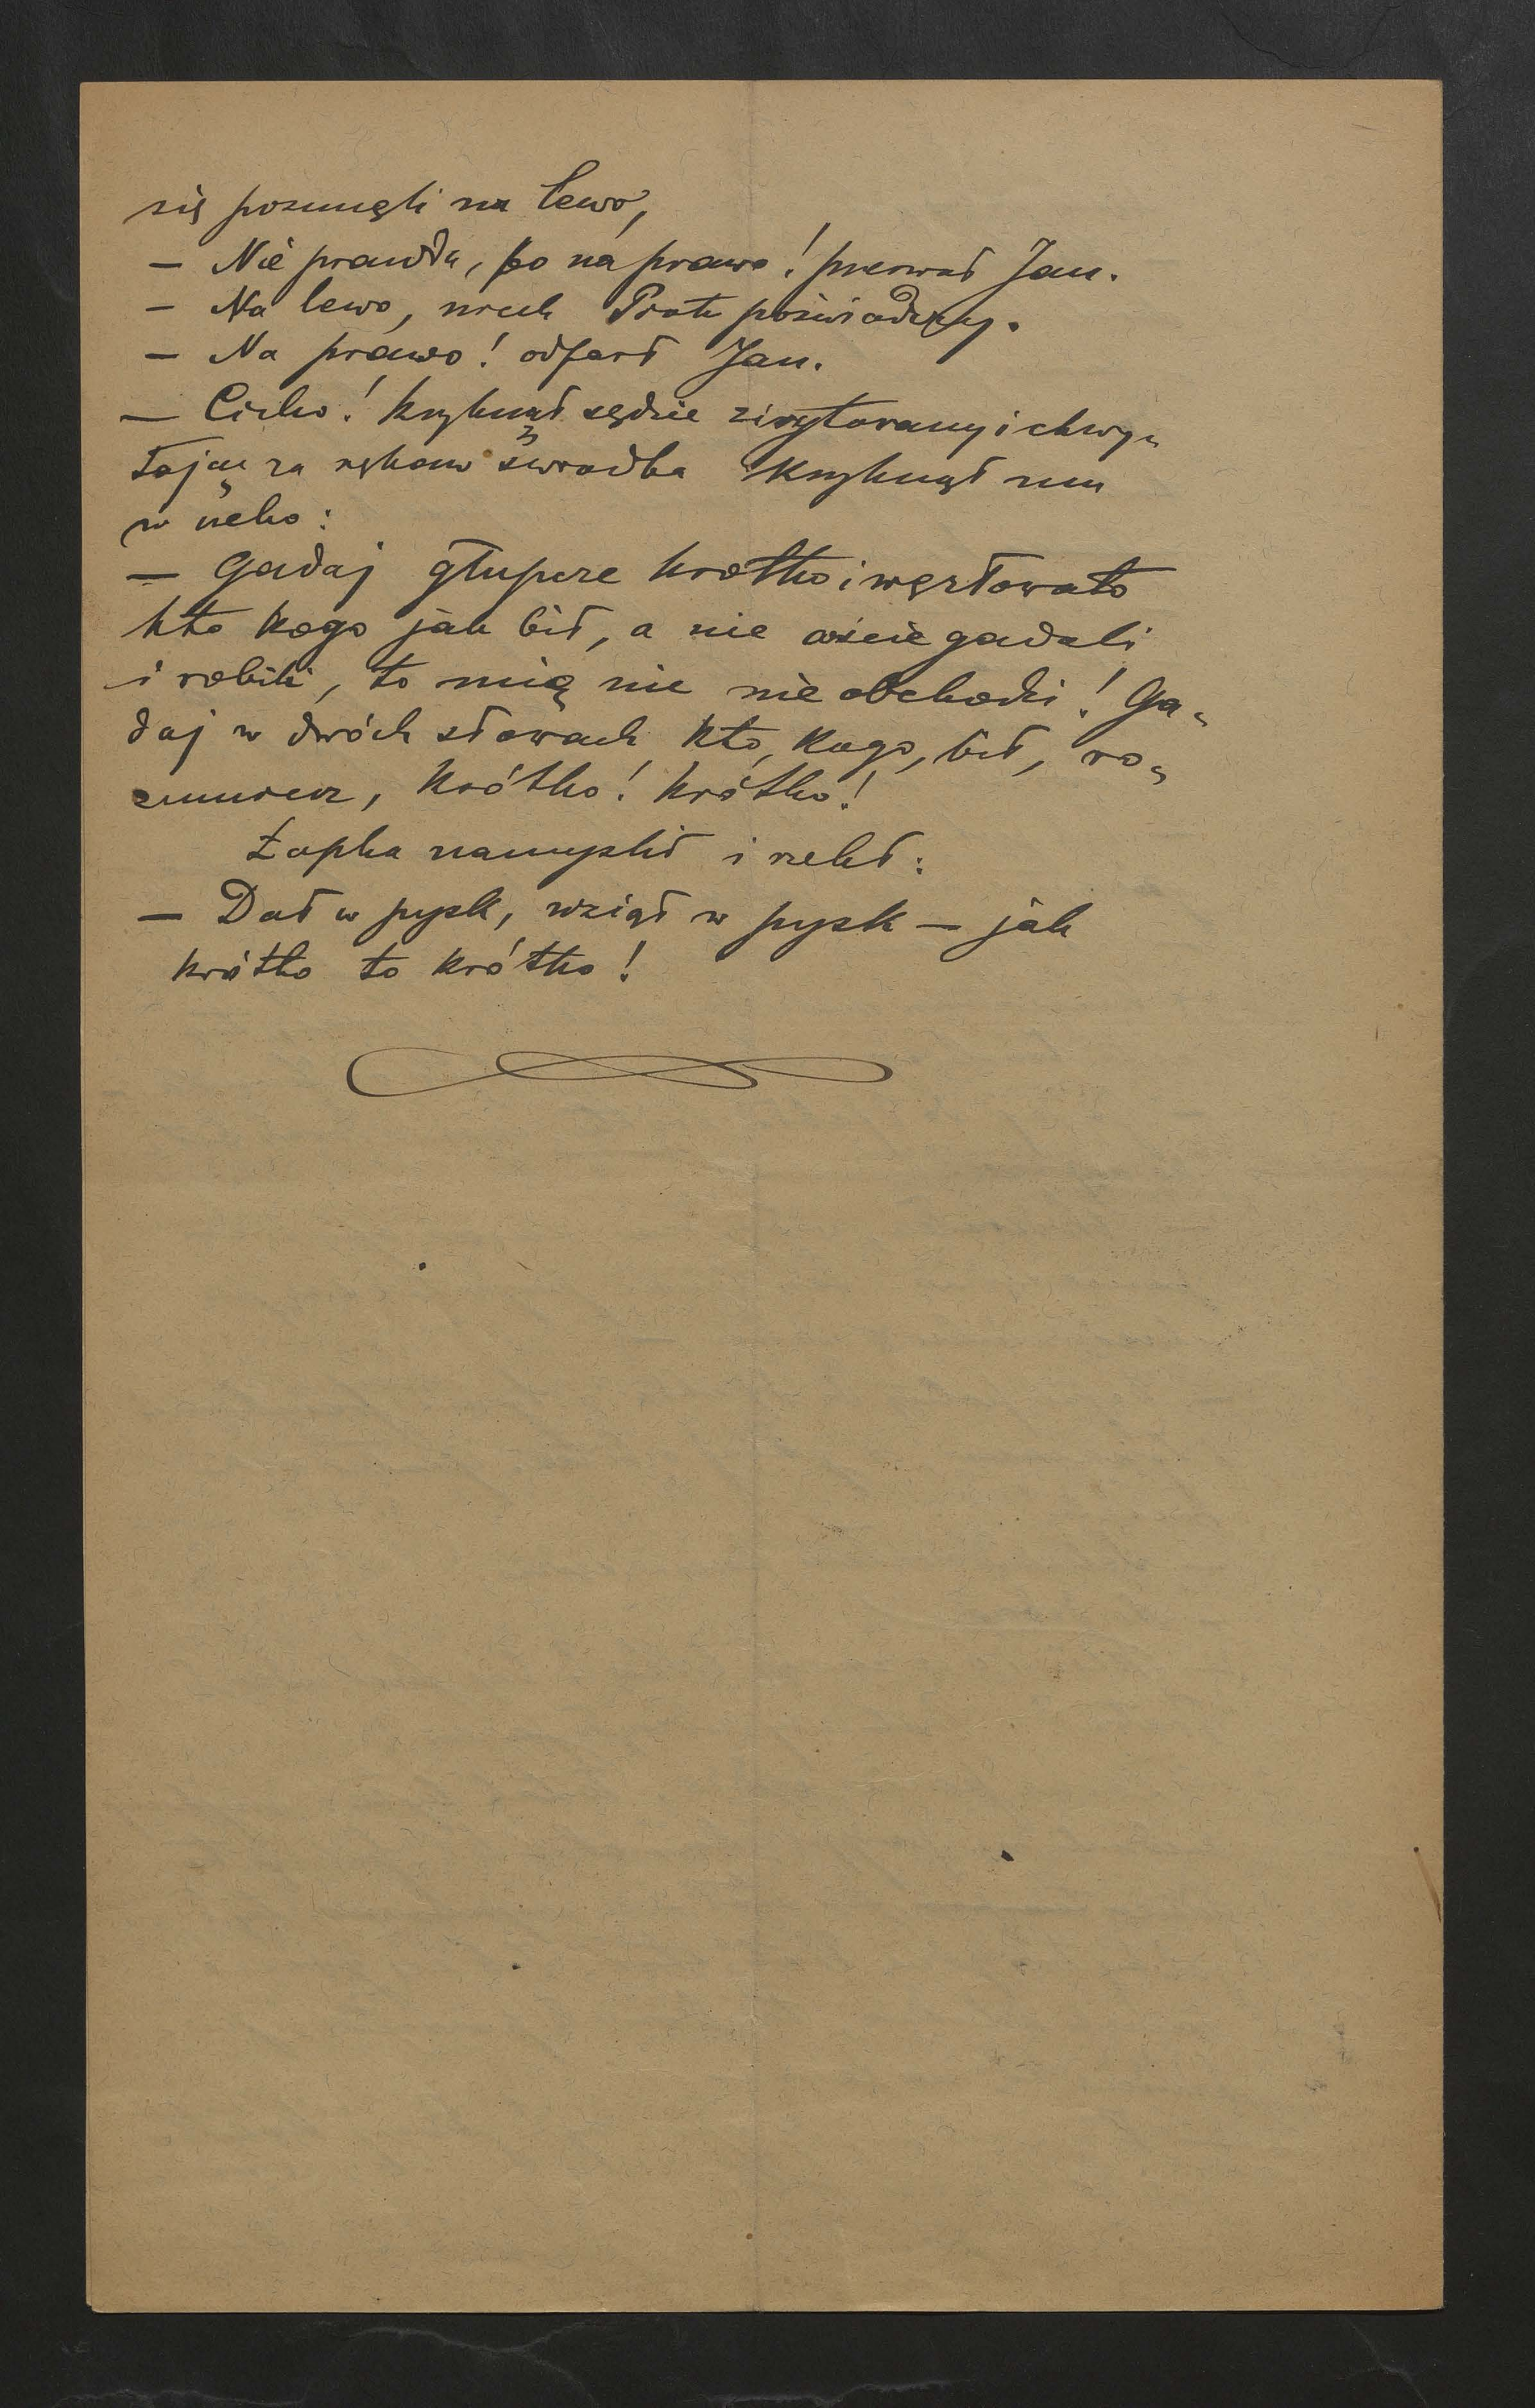 się posunęli na lewo,
— Nie prawda, bo na prawo! przerwał Jan.
— Na lewo, niech Piotr poświadczy.
— Na prawo! odparł Jan.
— Cicho! krzyknął sędzie zirytowany i chwy„
tając za rękaw świadka krzyknął mu
w ucho:
— Gadaj głupcze krótko i węzłowato
kto kogo jak bił, a nie coście gadali
i robili, to mię nic nie obchodzi! Ga„
daj w dwóch słowach kto, kogo, bił, ro„
zumiesz, krótko! krótko!
Łapka namyślił i rzekł:
— Dał w pysk, wziął w pysk — jak
krótko to krótko!